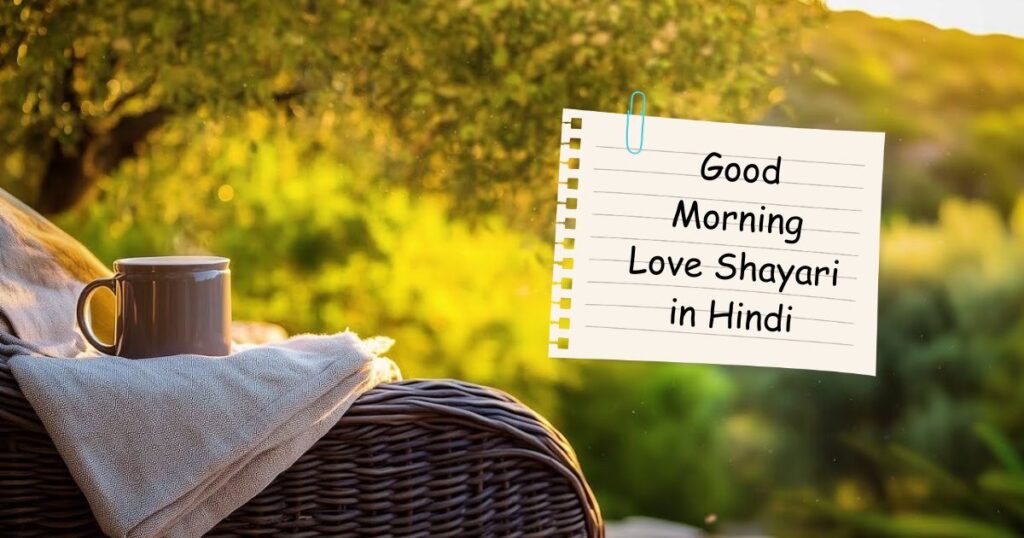 Good
Morning
Love Shayari
in Hindi